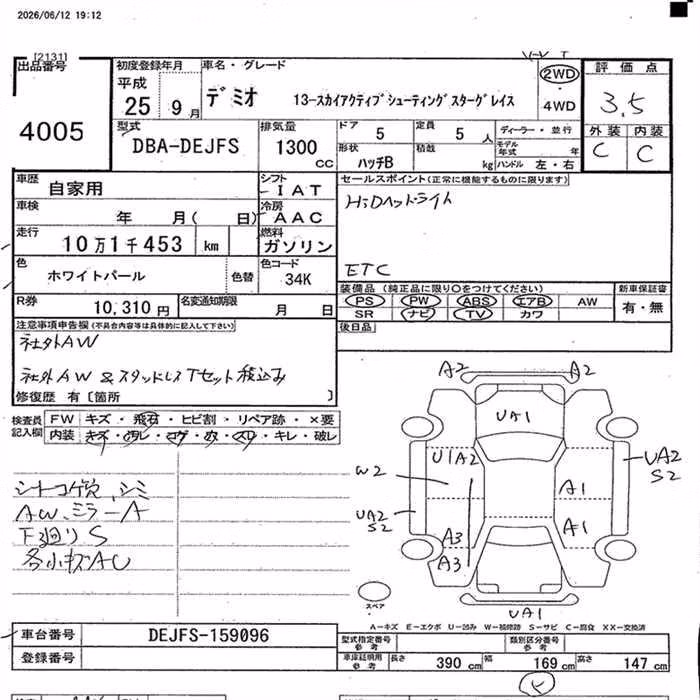 2026/06/12 19:12
[2131]
出品番号
4005
初度登録年月
平成
25 9月
車名・グレード
デミオ 13-スカイアクティブシューティングスターグレイス
2WD
4WD
評価点
3.5
外装 内装
C C
型式
DBA-DEJFS
排気量
1300 CC
ドア 5
定員 5 人
形状 ハッチB
積載 kg
ディーラー・並行
モデル年式 年
ハンドル 左・右
車歴 自家用
シフト IAT
車検 年 月( 日)
冷房 AAC
走行 10万1千453 km
燃料 ガソリン
色 ホワイトパール
色替
色コード 34K
R券 10,310円
名変通知期限 月 日
セールスポイント(正常に機能するものに限ります)
HiDヘッドライト
ETC
装備品(純正品に限り○をつけてください)
PS PW ABS エアB AW
SR ナビ TV カワ
新車保証書
有・無
後日品
注意事項申告欄(不具合内容等は具体的に記入して下さい)
社外AW
社外AW & スタッドレスTセット積込み
修復歴 有〔箇所 〕
検査員記入欄
FW キズ・飛石・ヒビ割・リペア跡・×要
内装 キズ・汚レ・コゲ・穴・スレ・キレ・破レ
シートコゲ穴、シミ
AW、ミラーA
下廻りS
各小キズAU
A2 A2
UA1
U1A2
W2
UA2
S2
A1
UA2
S2
A1
A3
A3
スペア
UA1
A-キズ E-エクボ U-凹み W-補修跡 S-サビ C-腐食 XX-交換済
車台番号 DEJFS-159096
登録番号
型式指定番号 参考
類別区分番号 参考
車庫証明用 参考
長さ 390 cm
幅 169 cm
高さ 147 cm